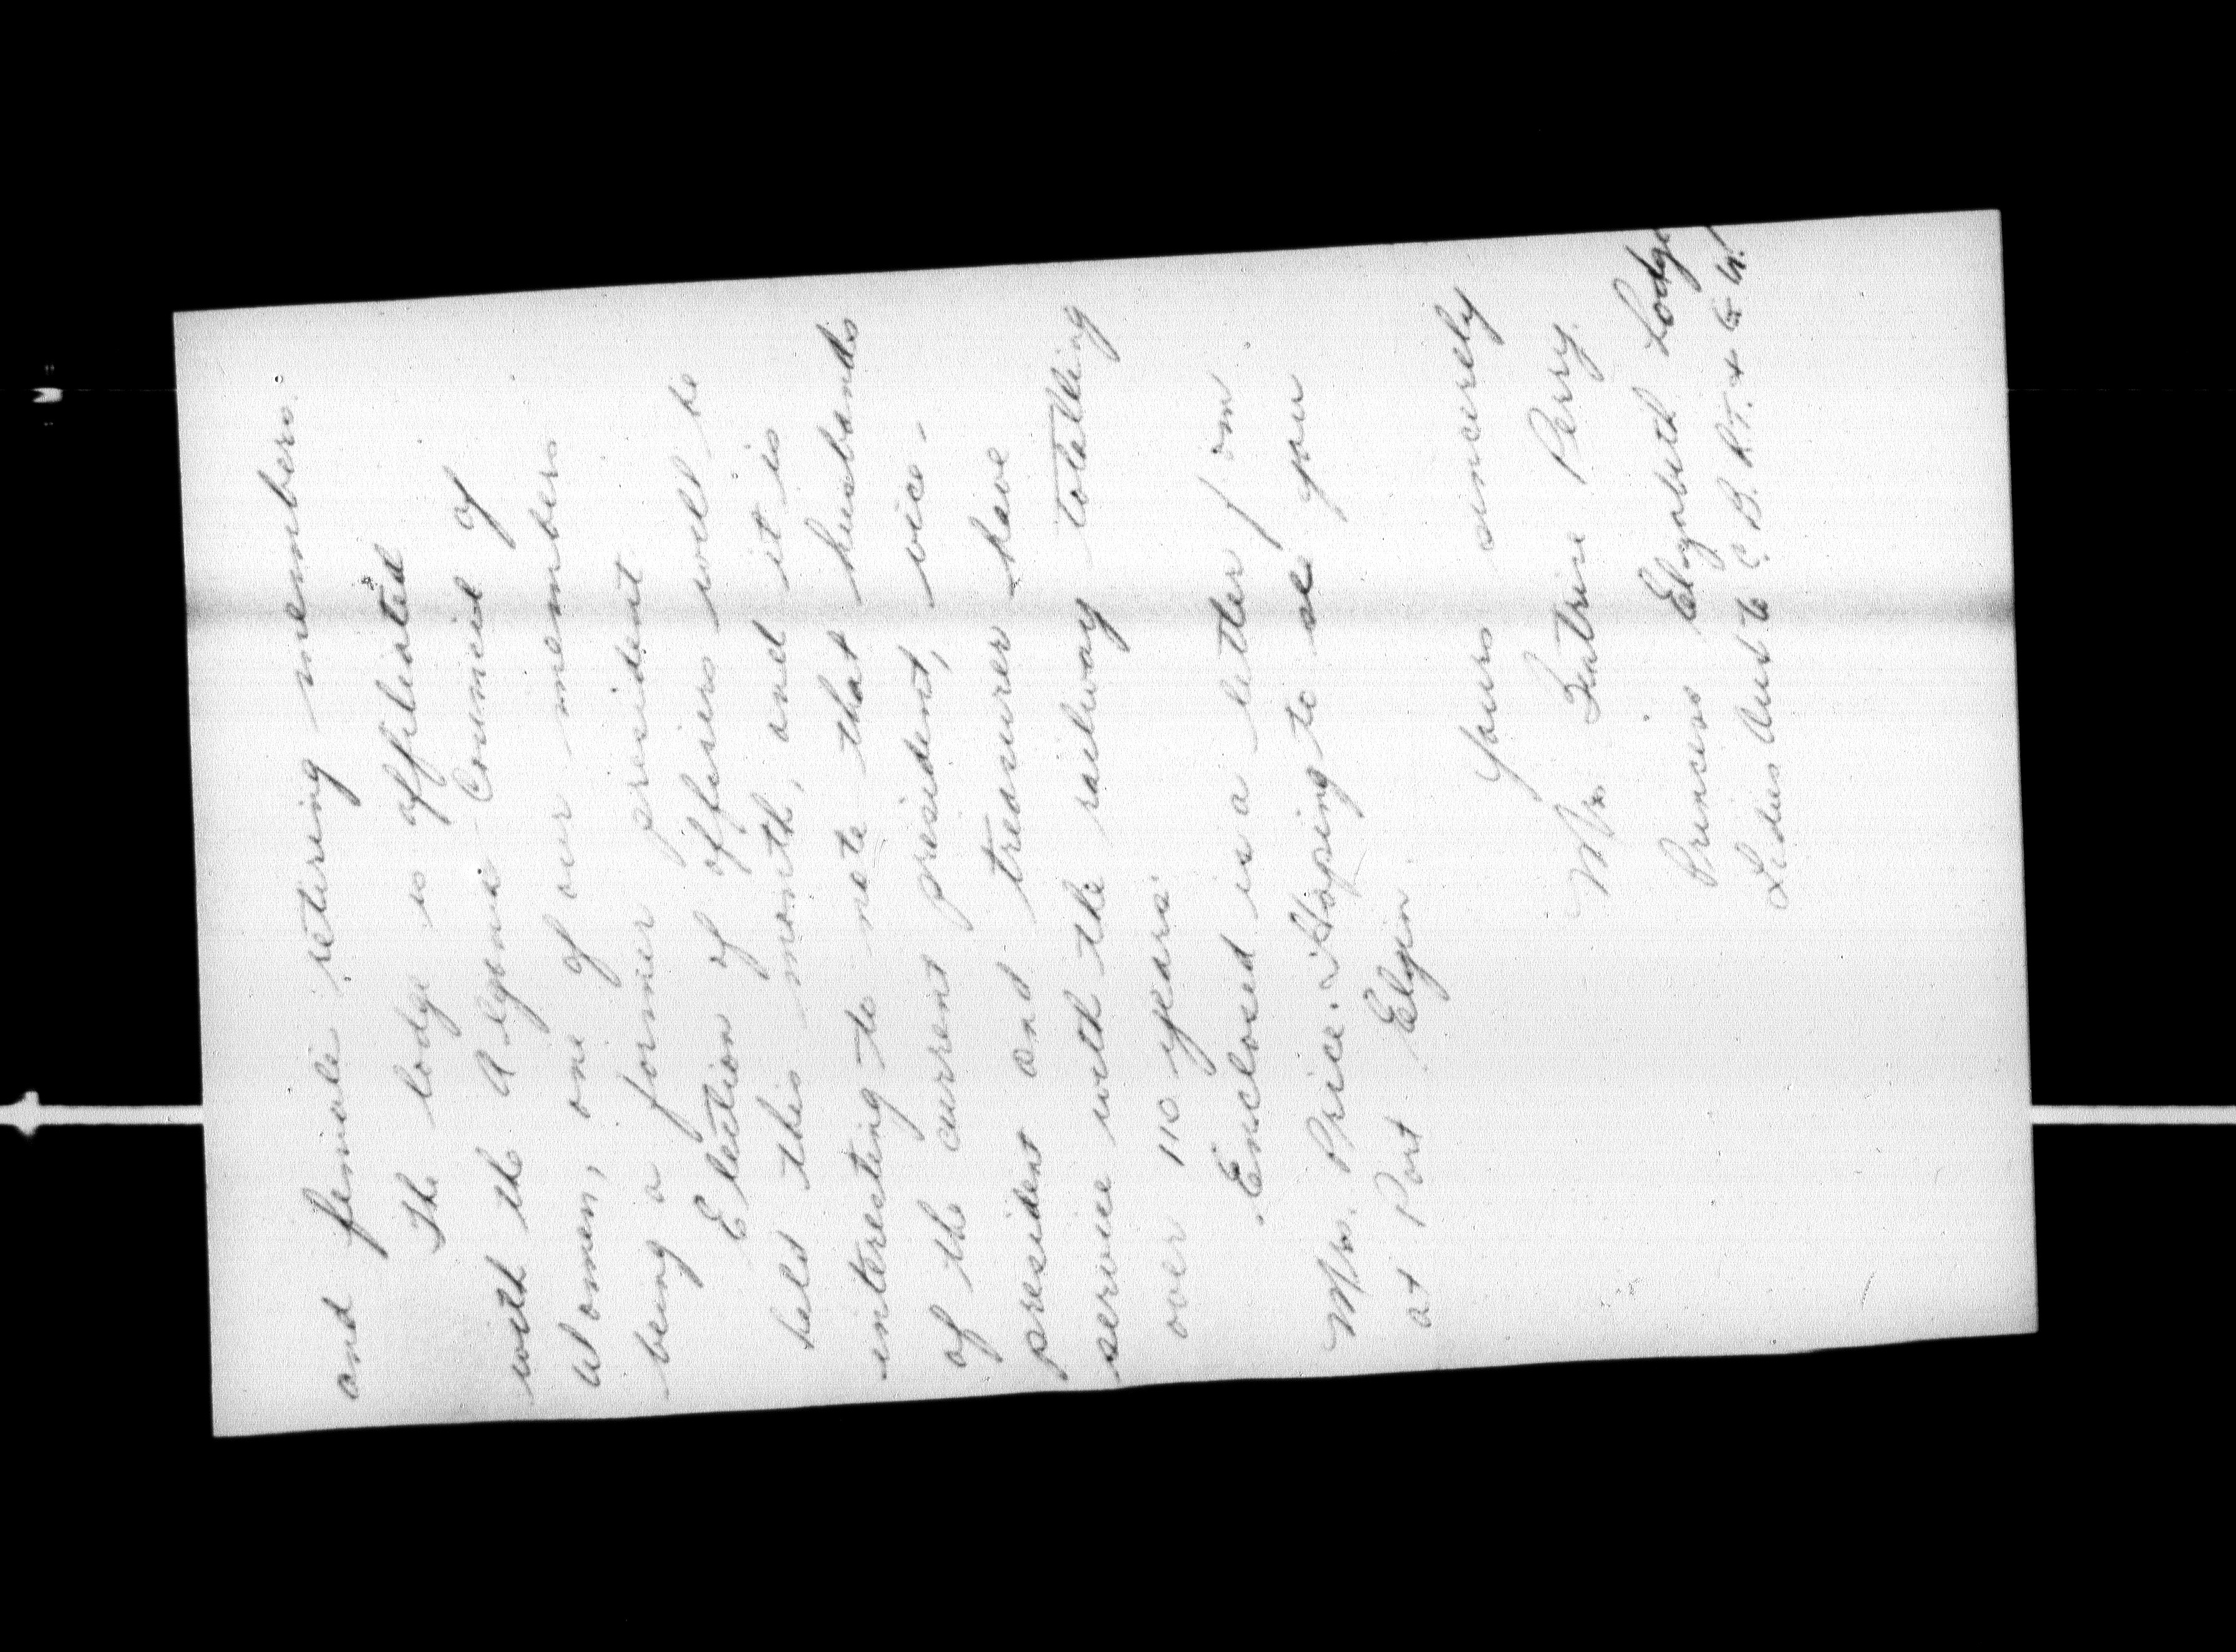 and female retiring members.
The lodge is affiliated
with the Algoma Council of
Women, one of our members
being a former president
Election of officiers will be
held this month, and it is
interesting to note that husbands
of the current president, vice-
president and treasurer have
service with the railway totalling
over 110 years.
Enclosed is a letter from
Mrs. Price. Hoping to see you
at Port Elgin.
Yours sincerely
Mrs. Perry.
Princess Elizabeth Lodge
Ladies Aux to C. B. R.T. + G W.